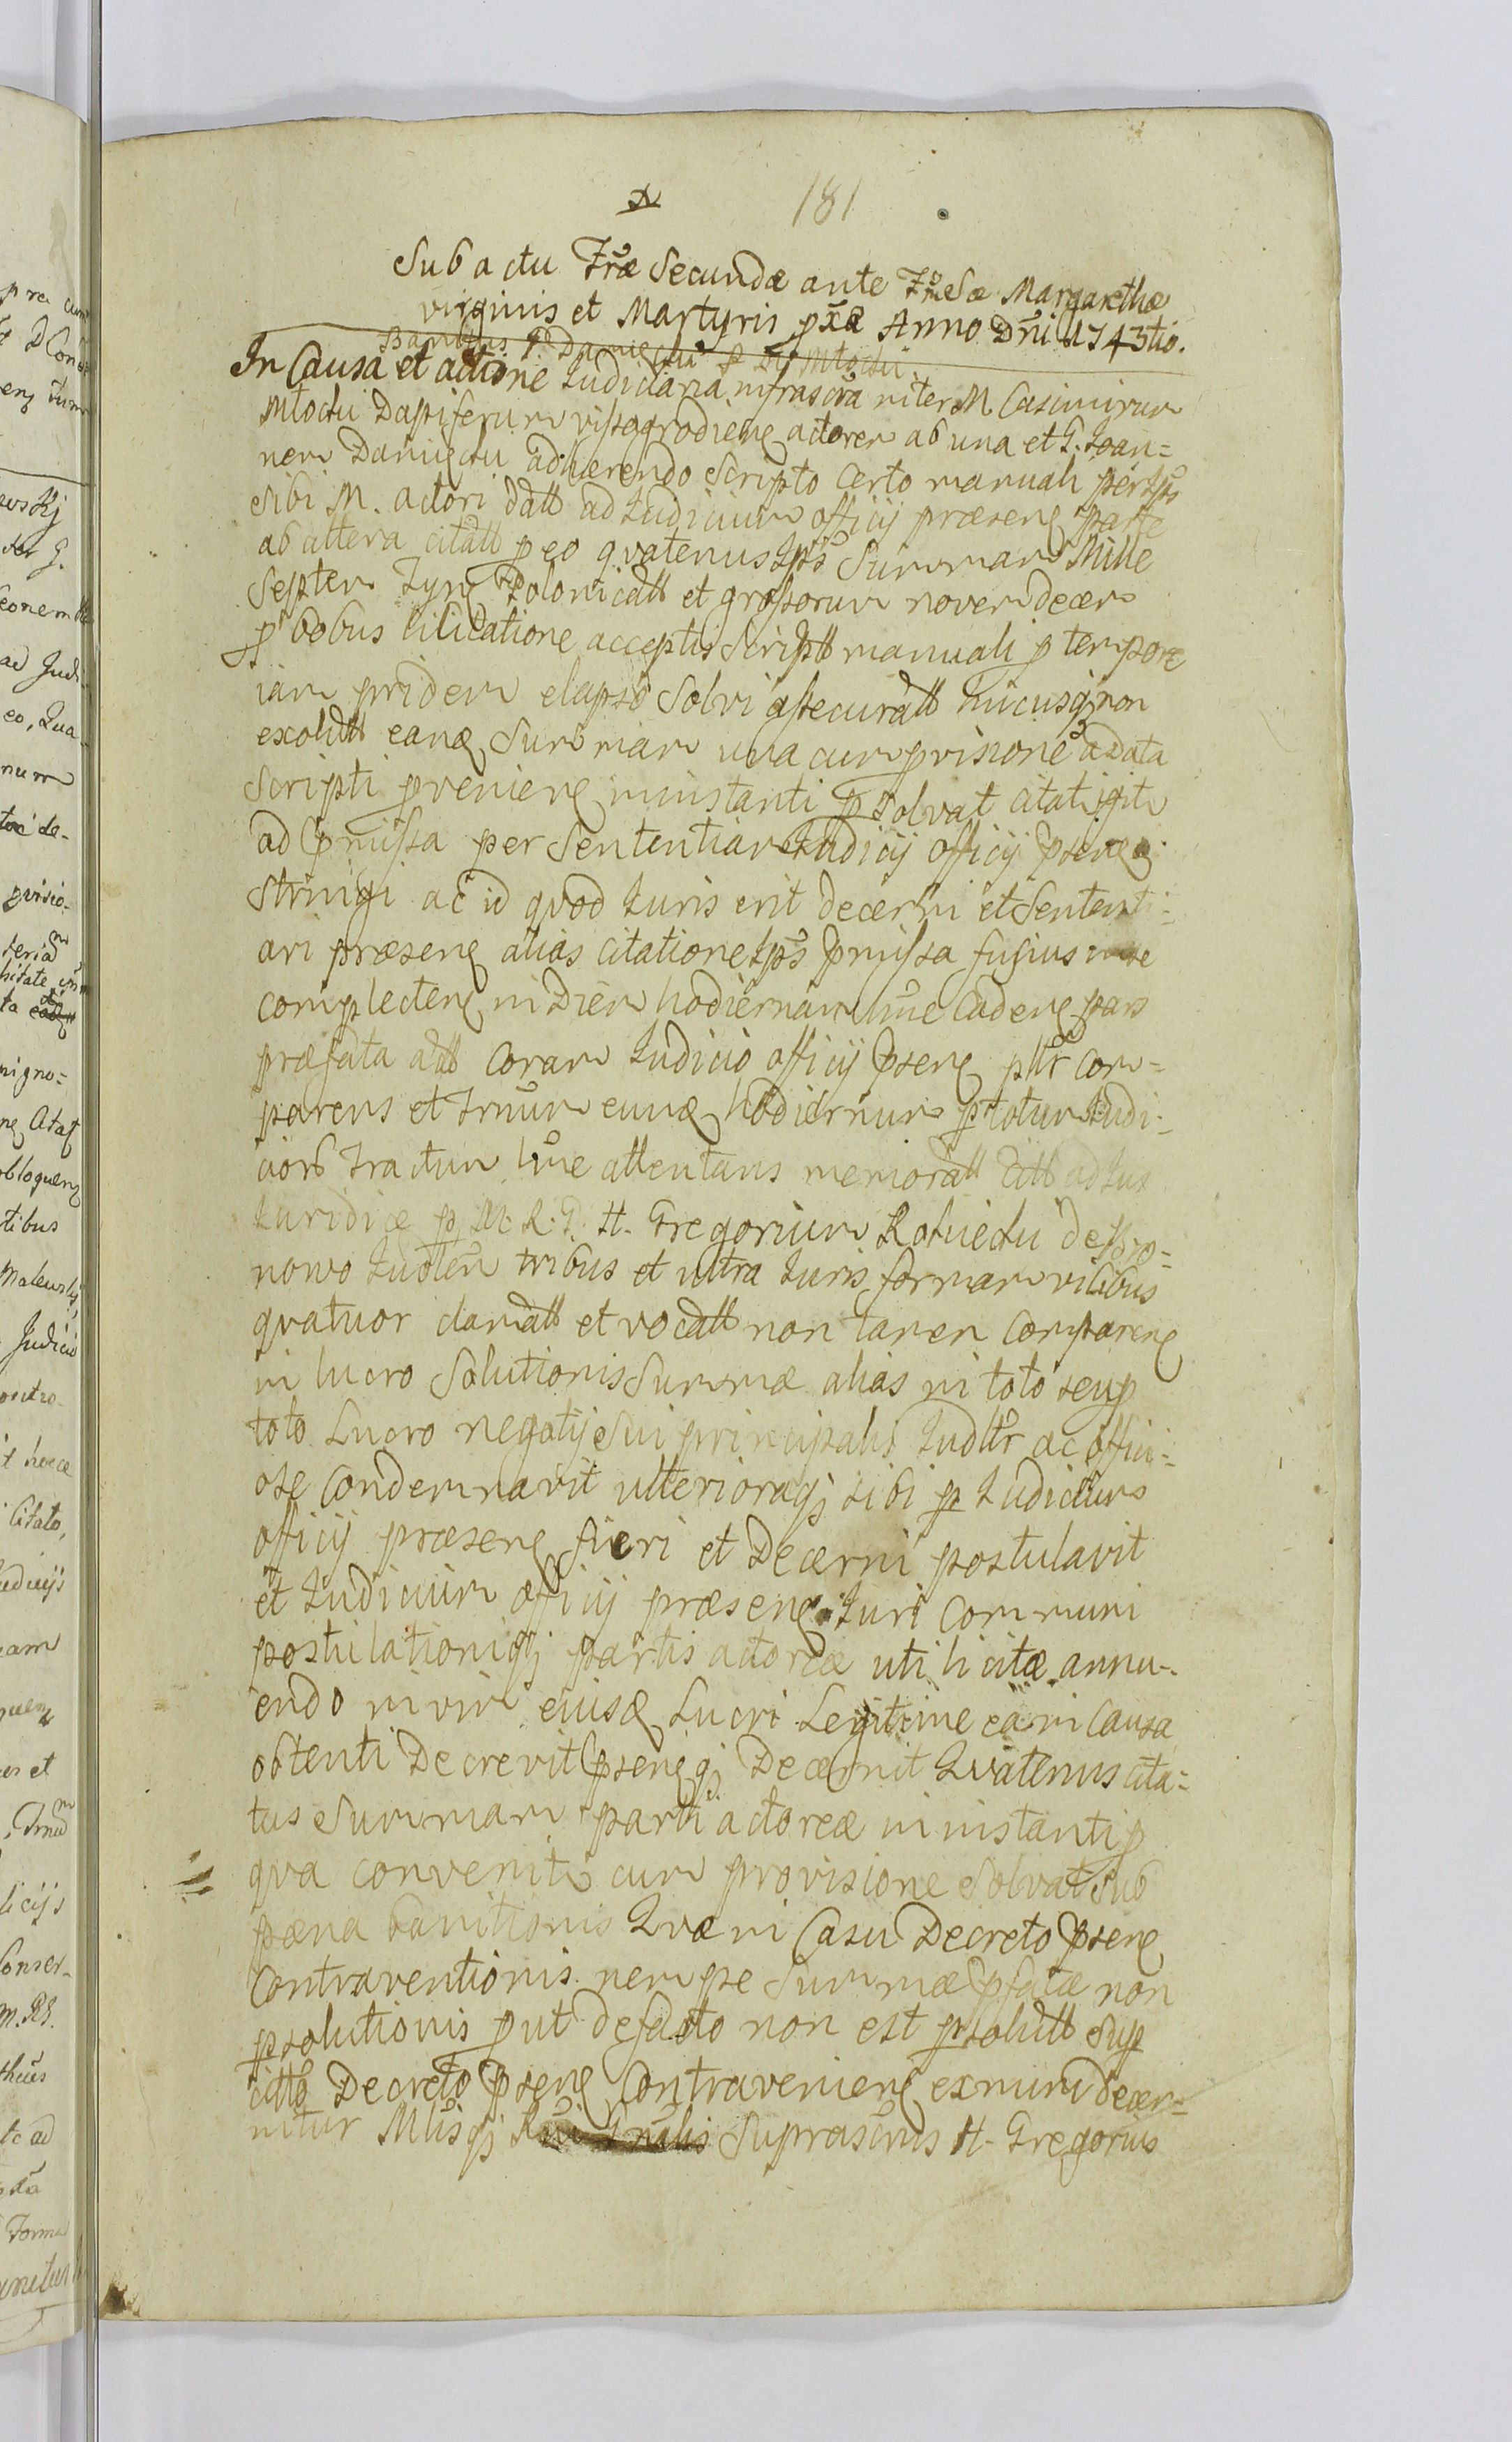 181
Sub actu Fr̃æ Secundæ ante F̃estæ Margarethæ
virginis et Martyris px̃a Anno Dñi 1743tio.
Banitus G. Damięcki p M. Młocki
In Causa et actione Judiciaria infrascr̃a inter M. Casimirum
Młocki Dapiferum vissogrodieñ actorem ab una et G. Joan=
nem Damięcki adhærendo Scripto Certo manuali per Ips̃
Sibi M. actori datt ad Judicium officij præseñ parte
ab altera citatt p eo qvatenus Ips̃ Summam Mille
Septem Tynf Polonicatt et grossorum novemdecem
p bobus licitatione acceptis Scriptt manuali p tempore
iam pridem elapso Solvi assecuratt hucusqȝ non
exolutt eanđ Summam una cum provisione a data
Scripti proveniene in instanti psolvat citatq̃
ad pmissa per Sententiam Judicij officij pseñ
Stringi ac id qvod Juris erit decerni et Sententi=
ari præseñ alias citatione Ips̃ pmissa fusius in se
complecteñ in Diem hodiernam l̃ne Cadeñ pars
præfata actt Coram Judicio officij pseñ pltr com=
parens et Trñum eunđ hodiernum p totum Judi=
ciorb tractum l̃me attentans memoratt Citt ad Jus
Juridice p M. R. G. H. Gregorium Rotwicki de
nowo Judłem tribus et ultra Juris formam vicibus
qvatuor clamatt et vocatt non tamen Compareñ
in lucro Solutionis Summæ alias in toto seu p
toto Lucro negotij Sui principalis Judltr ac offici=
ose Condemnavit ulterioraqȝ sibi p Judicium
officij præseñ fieri et Decerni postulavit
et Judicium officij præseñ Juri Communi
postulationiqȝ partis actoreæ uti licitæ annu=
endo in vim eiusđ Lucri Legitime ea in Causa
obtenti Decrevit pseñqȝ Decernit Qvatenus cita=
tus Summam parti actoreæ in instanti p
qva convenitr cum provisione Solvat Sub
pæna banitionis Qvæ in Casu Decreto pseñ
Contraventionis nempe Summæ pfatæ non
psolutionis p ut de facto non est psolutt Sup
citto Decreto pseñ Contravenieñ ex nunc decer=
nitur Mlisqȝ Rni Gñalis Suprascr̃us H. Gregorius